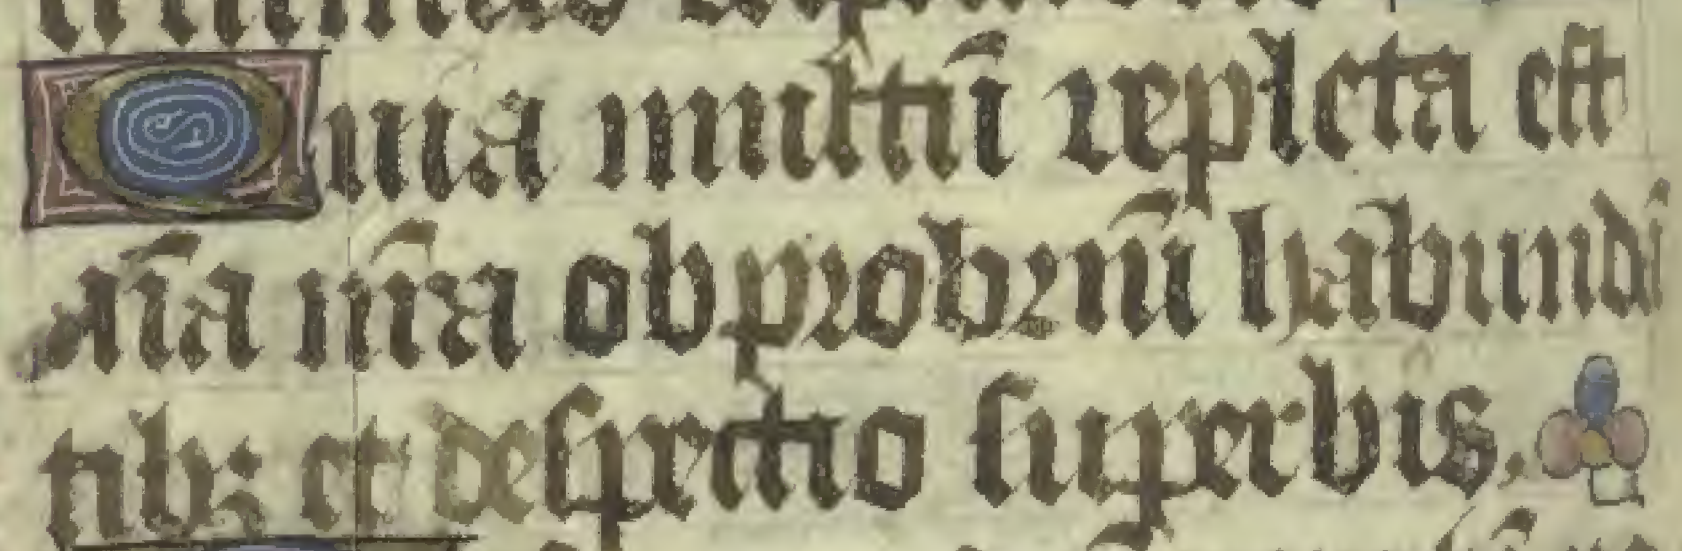 Quia multū repleta est
aīa nr̄a obprobriū habundā
tibꝫ et despectio superbis.